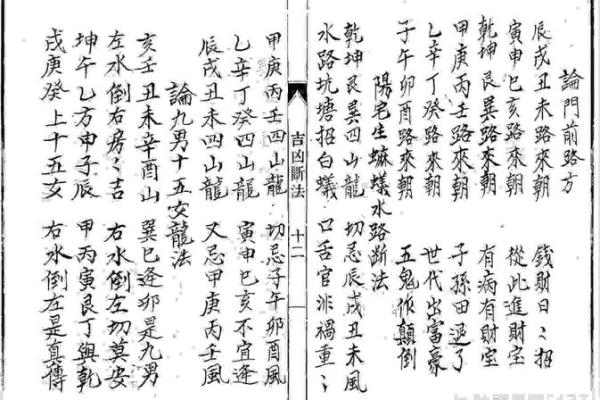 論門前路方
辰戌丑未路來朝 錢財日〻招
寅申巳亥路來朝 從此進財宝
乾坤艮巽路來朝 有病有財宝
甲庚丙壬路來朝 子孫田退了
乙辛丁癸路來朝 世代出富豪
子午卯酉路來朝 五鬼作顛倒
陽宅生蔴蟻水路斷法
乾坤艮巽四山龍 切忌辰戌丑未風
水路坑塘招白蟻 口舌官非禍重〻
吉凶斷法 十二
甲庚丙壬四山龍 切忌子午卯酉風
乙辛丁癸四山龍 寅申巳亥不宜逢
辰戌丑未四山龍 又忌甲庚丙壬風
論九男十五女龍法
亥壬丑未辛酉山 巽巳逢卯是九男
左水倒右房〻吉 右水倒左切莫安
坤午乙方申子辰 甲丙寅艮丁與乾
戌庚癸上十五女 右水倒左是真傳